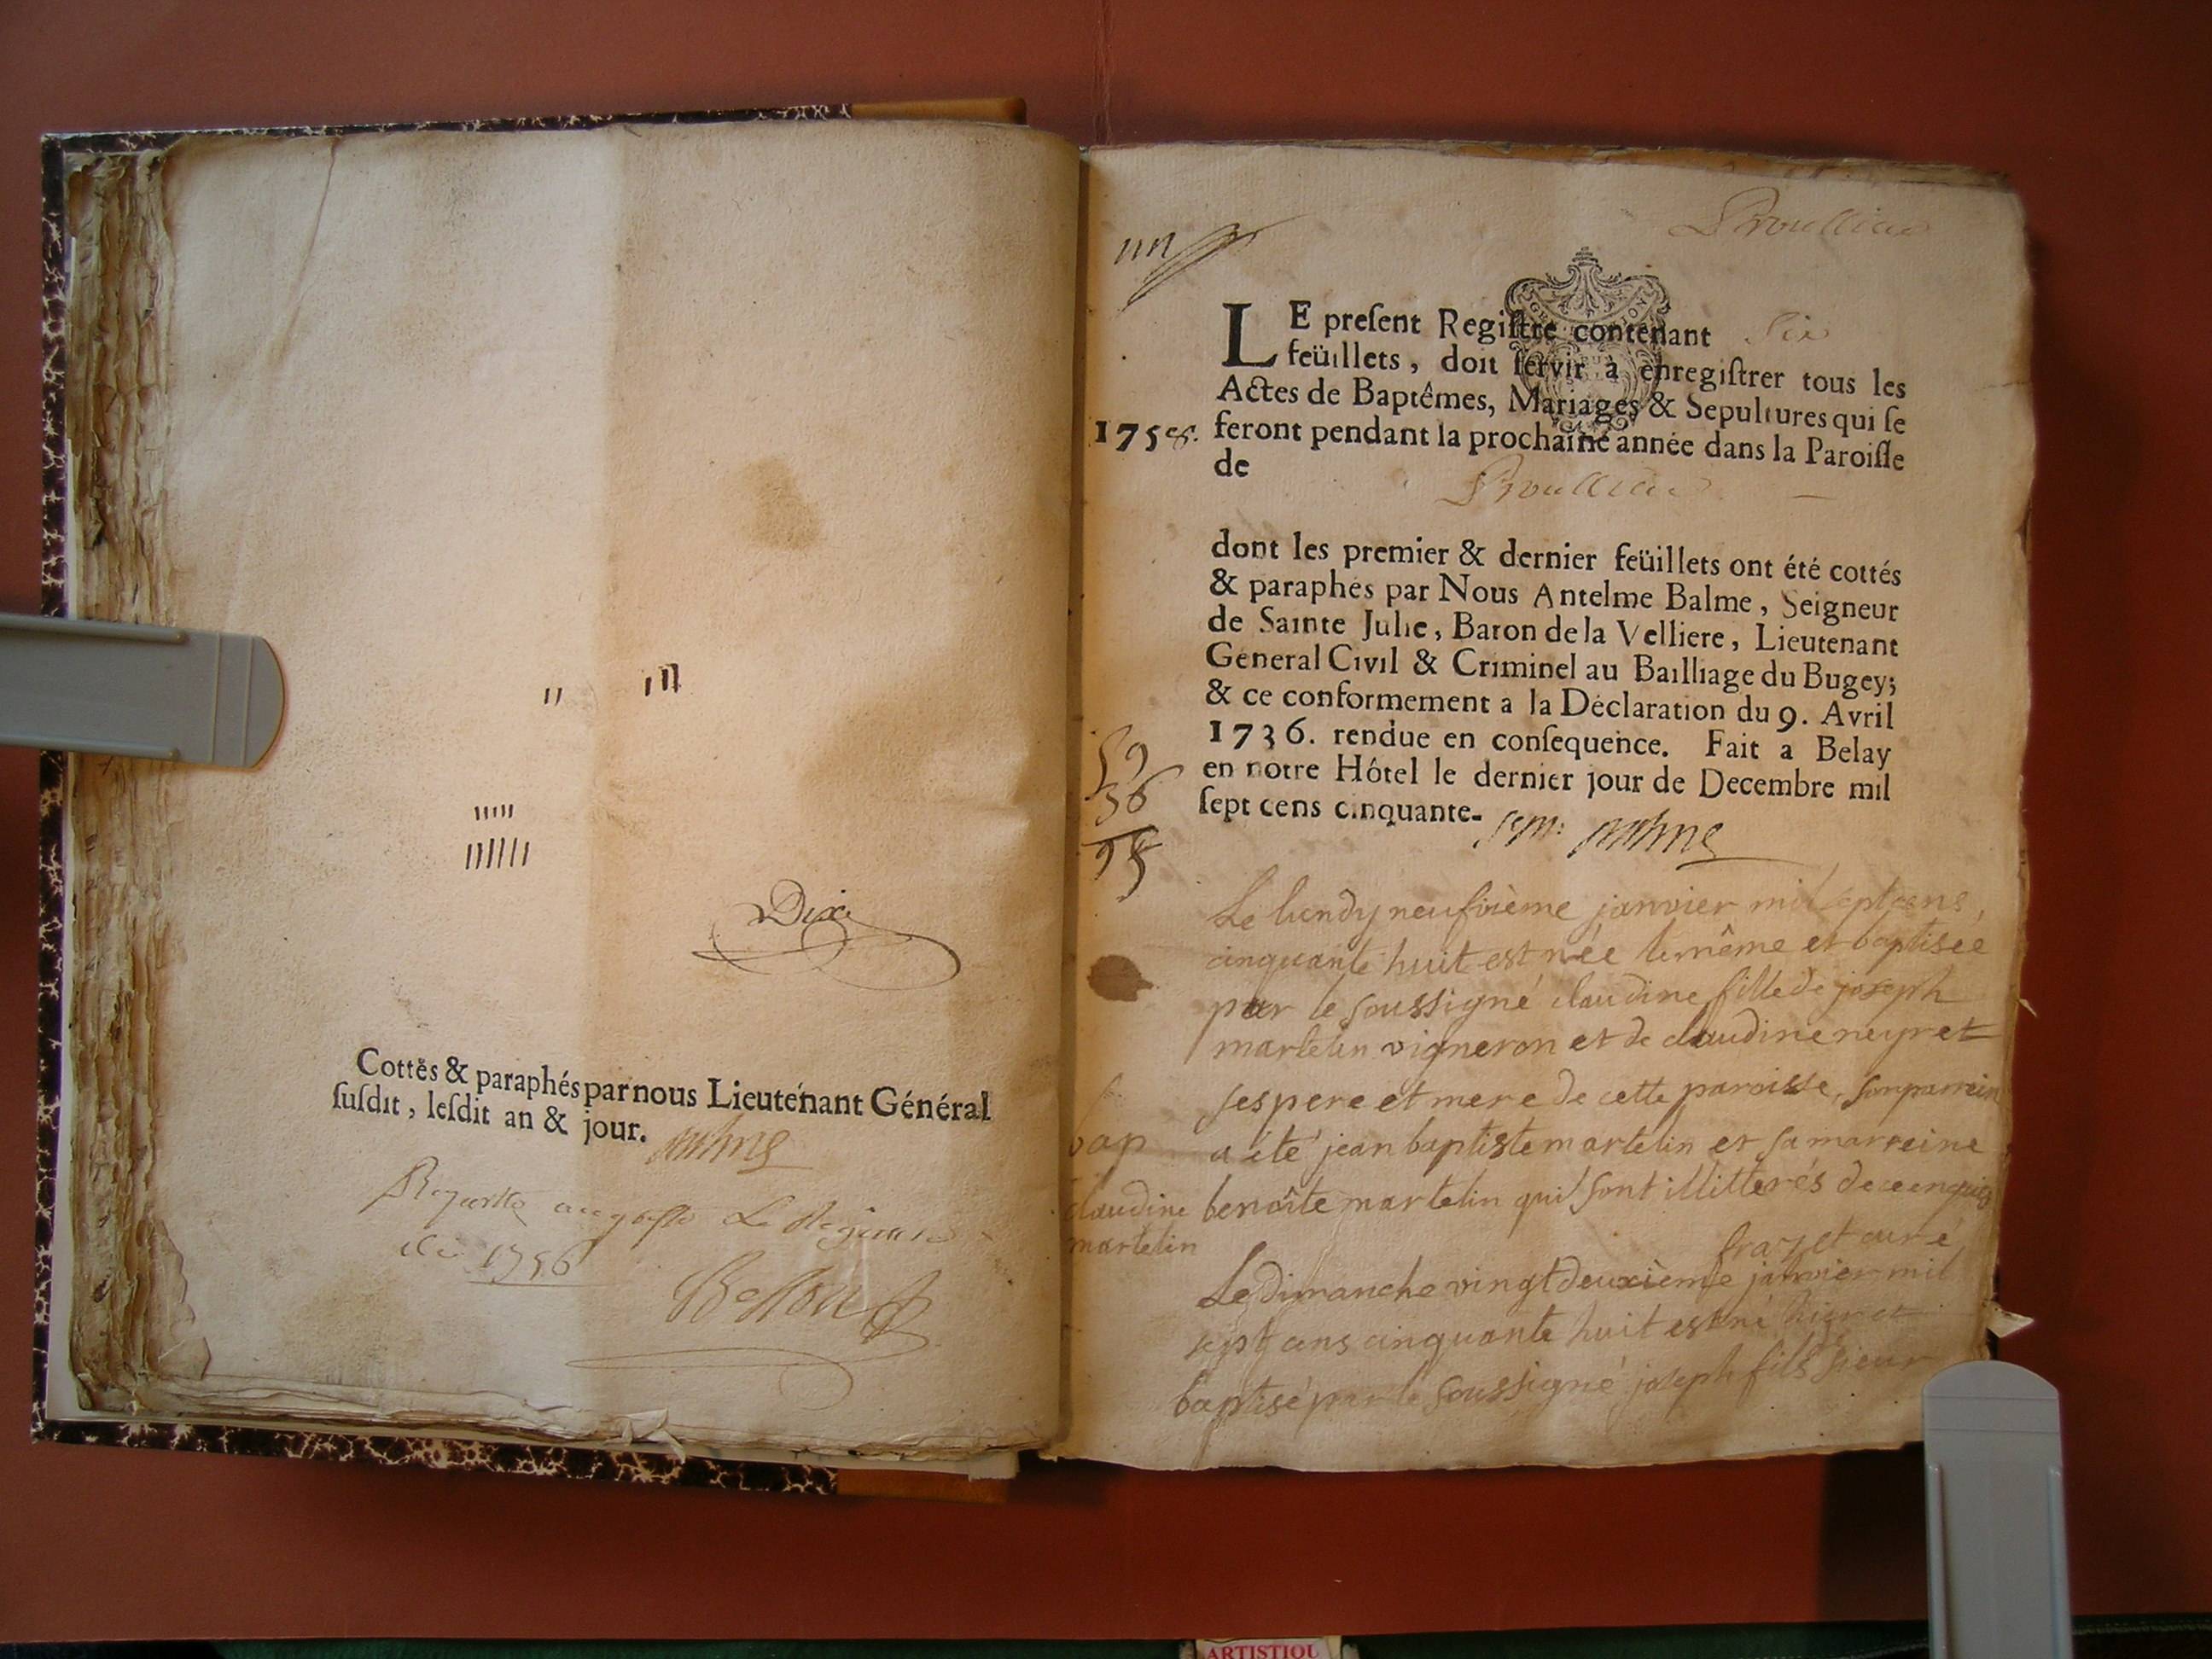 Dix
Cottés & paraphés par nous Lieutenant Général
ſuſdit, leſdit an & jour.
1756
un
LE preſent Regiſtre contenant Six
feüillets, doit ſervir à enregiſtrer tous les
Actes de Baptêmes, Mariages & Sepultures qui ſe
1758. feront pendant la prochaine année dans la Paroiſſe
de
dont les premier & dernier feüillets ont été cottés
& paraphés par Nous Antelme Balme, Seigneur
de Sainte Julie, Baron de la Velliere, Lieutenant
General Civil & Criminel au Bailliage du Bugey;
& ce conformement a la Déclaration du 9. Avril
1736. rendue en conſequence. Fait a Belay
en notre Hôtel le dernier jour de Decembre mil
ſept cens cinquante-sept. Balme
59
36
95
Le lundy neufvième janvier mil sept cens
cinquante huit est née le même et baptisée
par le soussigné claudine fille de joseph
martelin vigneron et de claudine neyret
ses pere et mere de cette paroisse, son parrein
a été jean baptiste martelin et sa marreine
benoîte martelin qui sont illitterés de ce enquis
frazet curé
bap
claudine
martelin
Le dimanche vingt deuxième janvier mil
sept cens cinquante huit est né hier et
baptisé par le soussigné joseph fils sieur
ARTISTIQU